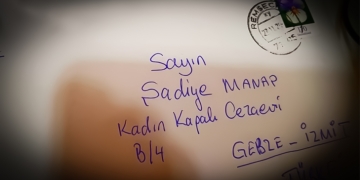 Sayın
Şadiye MANAP
Kadın Kapalı Cezaevi
B/4
GEBZE - İZMİT